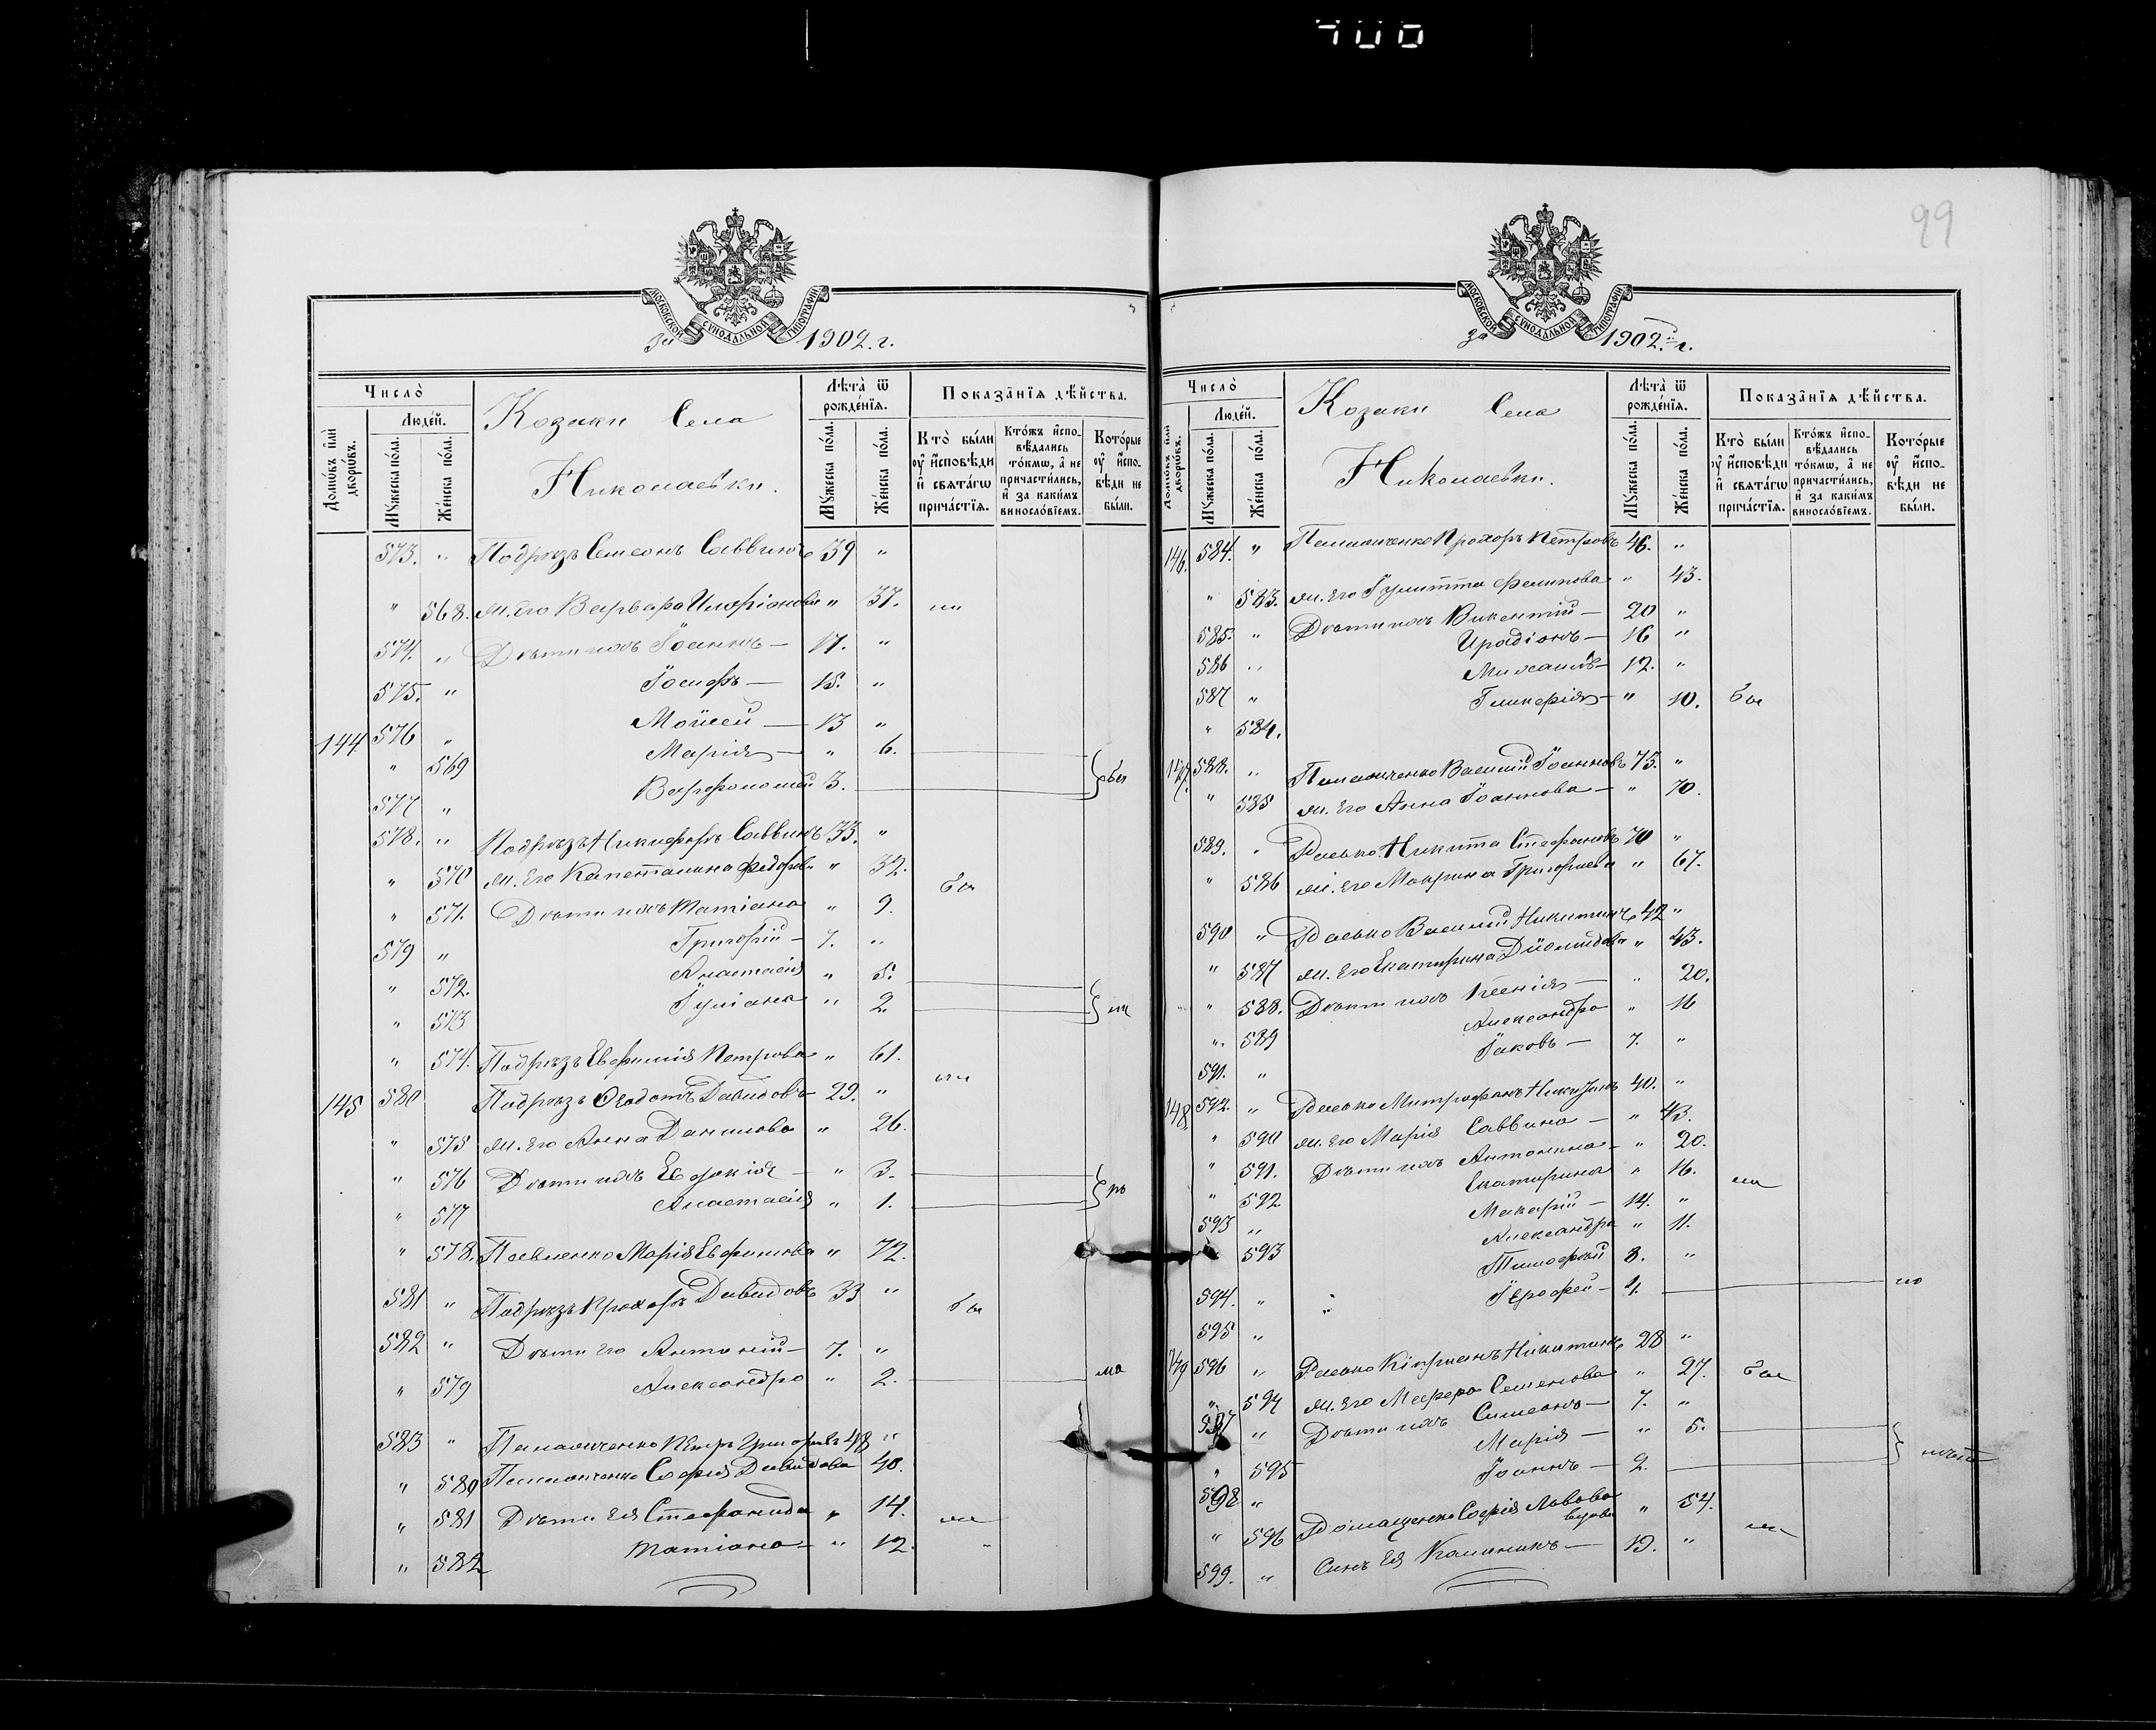 406
99
МОСКОВСКОЙ СѴНОДАЛЬНОЙ ТИПОГРАФІИ
За 1902. г.
Число̀
Домѡвъ и҆лѝ дворѡвъ.
Людей.
Мꙋжеска пола.
Женска пола.
Козаки Села
Николаевки.
Лѣта̀ ѿ рожденїѧ.
Мꙋжеска пола.
Женска пола.
Показанїѧ дѣйства.
Кто̀ были ᲂу҆ и҆сповѣди и҆ свѧтагѡ причастїѧ.
Ктожъ и҆споведались токмѡ, а҆ не причастились, и҆ за какимъ винословїемъ.
Которые ᲂу҆ и҆сповѣди не были.
573. " Подрѣзъ Семеонъ Саввинъ 39 "
" 568. ж. его Варвара Иларіонова " 37.
574. " Дѣти ихъ Іоаннъ — 17. "
575. " Іосифъ — 15. "
144 576 " Моисей — 13 "
" 569 Марія — " 6.
577 " Варфоломей 3. бы
578. " Подрѣзъ Никифоръ Саввинъ 33. "
" 570 ж. его Капетолина Федорова " 32.
" 571. Дѣти ихъ Татіана " 9. бы
579 " Григорій — 7. "
" 572. Анастасія " 5.
" 573 Іуліана " 2. ли
" 574. Подрѣзъ Евфимія Петрова " 61.
145 580 Подрѣзъ Ѳеодотъ Давидовъ 29. "
" 575 ж. его Анна Данилова " 26.
" 576 Дѣти ихъ Евдокія — " 3.
" 577 Анастасія " 1.
" 578. Павленко Марія Евфимова " 72.
581 " Подрѣзъ Прохоръ Давидовъ 33 " бы
582 " Дѣти его Антоній — 7. "
" 579 Александра " 2.
583 " Панасенко Петръ Григорьевъ 48 "
" 580 Софія Давидова 40.
" 581 Дѣти ея Стефанида " 14.
" 582 Татіана — " 12.
МОСКОВСКОЙ СѴНОДАЛЬНОЙ ТИПОГРАФІИ
за 1902. г.
Число̀
Домѡвъ и҆лѝ дворѡвъ.
Людей.
Мꙋжеска пола.
Женска пола.
Козаки Села
Николаевки.
Лѣта̀ ѿ рожденїѧ.
Мꙋжеска пола.
Женска пола.
Показанїѧ дѣйства.
Кто̀ были ᲂу҆ и҆сповѣди и҆ свѧтагѡ причастїѧ.
Ктожъ и҆споведались токмѡ, а҆ не причастились, и҆ за какимъ винословїемъ.
Которые ᲂу҆ и҆сповѣди не были.
146. 584. " Прохоръ Петровъ 46. "
" 583. ж. его Іулитта Филипова " 43.
585. " Дѣти ихъ Викентій — 20 "
586 " Иродіонъ — 16 "
587 " Михаилъ — 12. "
" 584. Гликерія — " 10. бы
147. 588. " Василій Іоанновъ 75. "
" 585 ж. его Анна Іоаннова — " 70.
589. " Никита Стефановъ 70 "
" 586 ж. его Макрина Григорьева " 67.
590 " Василій Никитинъ 42 "
" 587 ж. его Екатерина Діомидова " 43.
" 588. Дѣти ихъ Ксенія — " 20.
" 589 Александра " 16
591. " Іаковъ — 7. "
148. 592. " Митрофанъ Никитинъ 40. "
" 590 ж. его Марія Саввина — " 43.
" 591. Дѣти ихъ Антонина — " 20.
" 592 Екатерина " 16. ли
593 " Макарій — 14. "
" 593 Александра " 11.
594. " Тимофей 8. "
595 " Іерофей — 1. но
149 596 " Кипріанъ Никитинъ 28 "
" 594 ж. его Марфа Семенова " 27. бы
597 " Дѣти ихъ Симеонъ — 7. "
" 595 Марія — " 5.
598 " Іоаннъ — 2.
" 596 Домащенко Софія Львова вдова " 54.
599. " Сынъ ея Калиникъ — 19. "